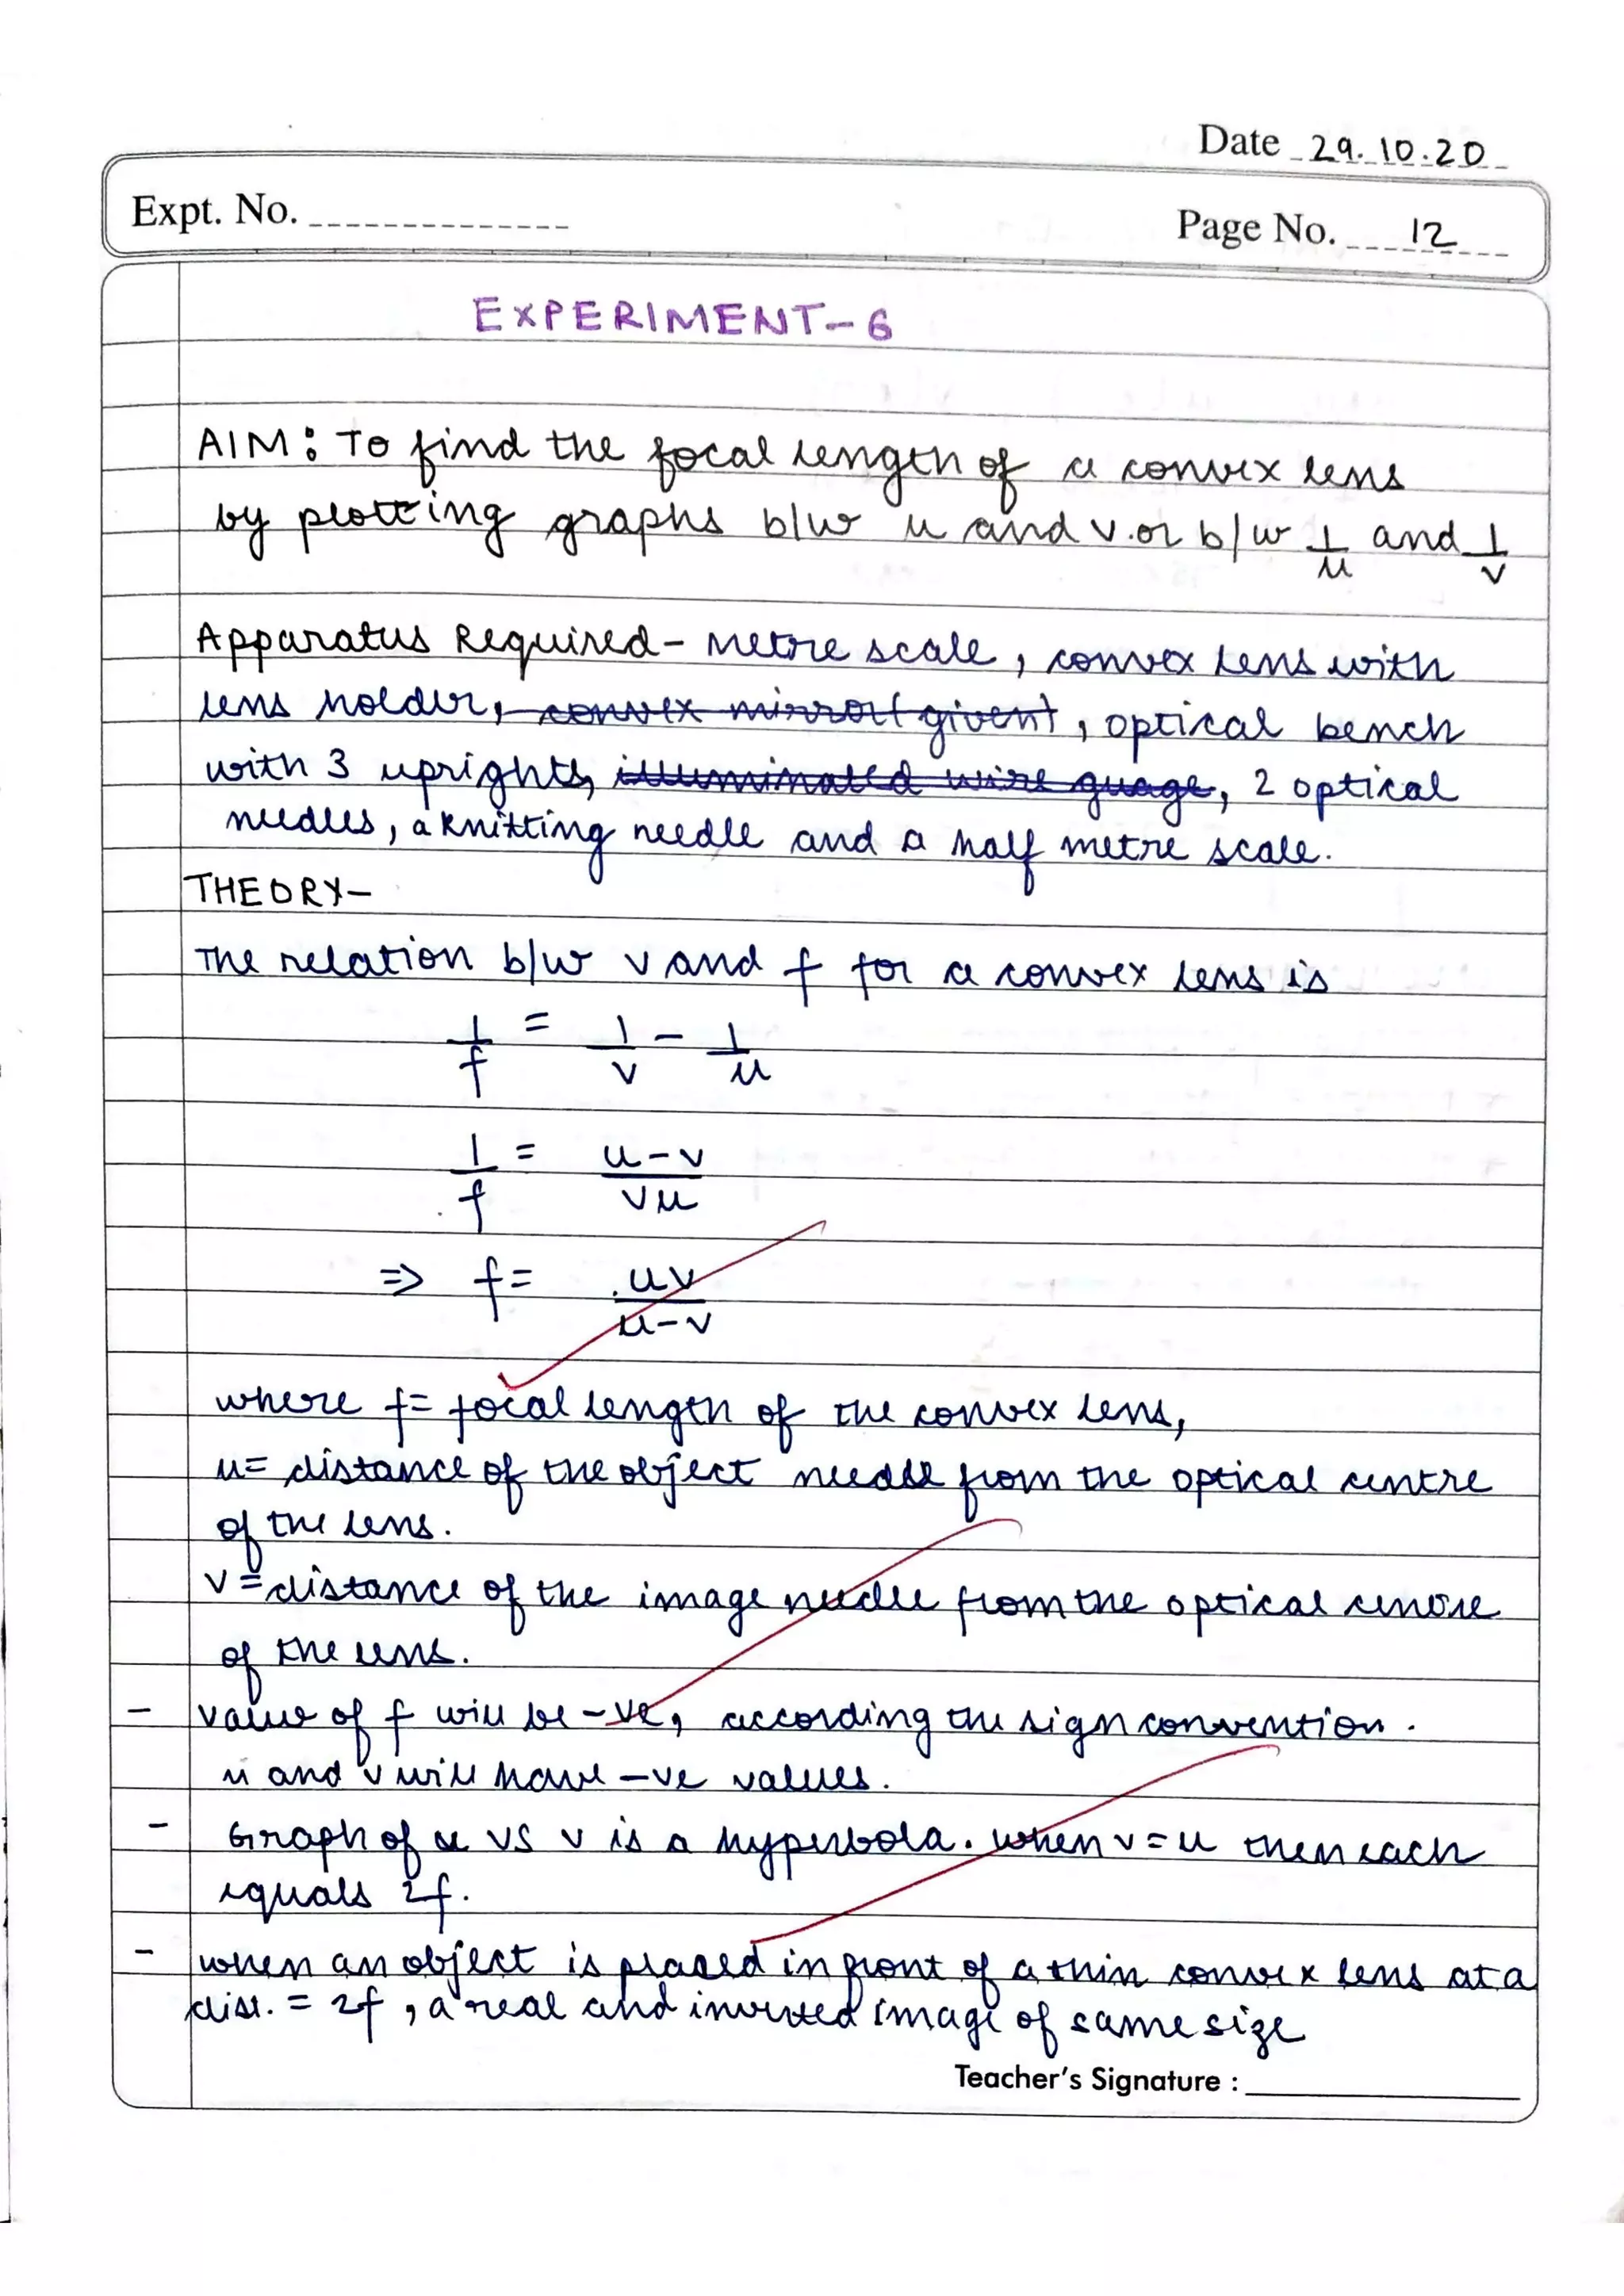 Date 29.10.20
Expt. No.
Page No. 12
EXPERIMENT-6
AIM: To find the focal length of a convex lens
by plotting graphs b/w u and v or b/w 1/u and 1/v
Apparatus Required- Metre scale, convex lens with
lens holder, convex mirror(given), optical bench
with 3 uprights, illuminated wire guage, 2 optical
needles, a knitting needle and a half metre scale.
THEORY-
The relation b/w v and f for a convex lens is
1/f = 1/v - 1/u
1/f = u-v/vu
=> f= uv/u-v
where f= focal length of the convex lens,
u= distance of the object needle from the optical centre
of the lens.
v= distance of the image needle from the optical centre
of the lens.
- value of f will be -ve, according the sign convention.
u and v will have -ve values.
- Graph of u vs v is a hyperbola. when v=u then each
equals 2f.
- when an object is placed in front of a thin convex lens at a
dist. = 2f, a real and inverted image of same size
Teacher's Signature :